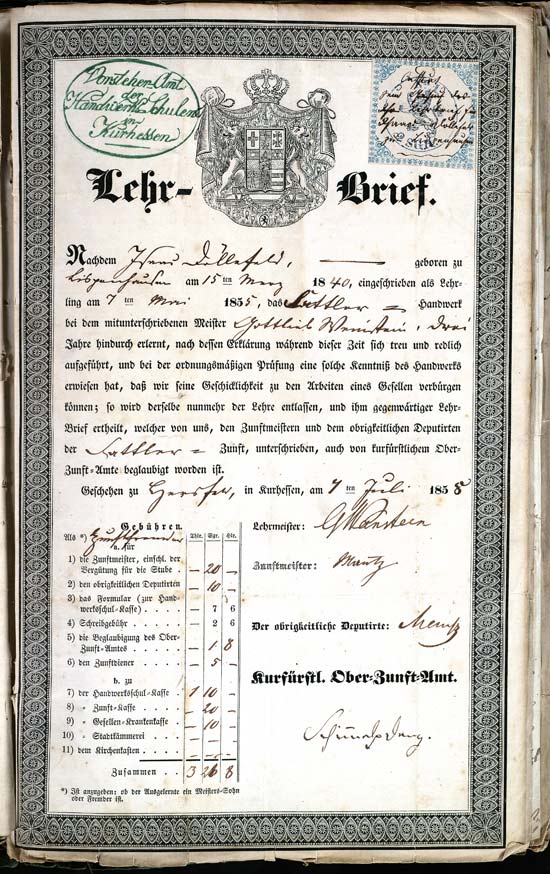 Vorsteher-Amt
der
Handwerks-Schulen
in
Kurhessen
Lehr-Brief.
Nachdem geboren zu
am 15 ten 1840, eingeschrieben als Lehr-
ling am 7 ten Mai 1855, das Sattler = Handwerk
bei dem mitunterschriebenen Meister Gottlieb Weinstein, drei
Jahre hindurch erlernt, nach dessen Erklärung während dieser Zeit sich treu und redlich
aufgeführt, und bei der ordnungsmäßigen Prüfung eine solche Kenntniß des Handwerks
erwiesen hat, daß wir seine Geschicklichkeit zu den Arbeiten eines Gesellen verbürgen
können; so wird derselbe nunmehr der Lehre entlassen, und ihm gegenwärtiger Lehr-
Brief ertheilt, welcher von uns, den Zunftmeistern und dem obrigkeitlichen Deputirten
der Sattler = Zunft, unterschrieben, auch von kurfürstlichem Ober-
Zunft-Amte beglaubigt worden ist.
Geschehen zu Hersfeld, in Kurhessen, am 7 ten Juli 1858
Gebühren. Thlr. Sgr. Hlr.
Als *)
a. für
1) die Zunftmeister, einschl. der
Vergütung für die Stube . — 20 —
2) den obrigkeitlichen Deputirten — 10 —
3) das Formular (zur Hand-
werksschul-Kasse) . . . . — 7 6
4) Schreibgebühr . . . . — 2 6
5) die Beglaubigung des Ober-
Zunft-Amtes . . . . . — 1 8
6) den Zunftdiener . . . . — 5 —
b. zu
7) der Handwerksschul-Kasse . 1 10 —
8) „ Zunft-Kasse . . . . — 20 —
9) „ Gesellen-Krankenkasse . — 10 —
10) „ Stadtkämmerei . . . — — —
11) dem Kirchenkasten . . . — — —
Zusammen . 3 26 8
*) Ist anzugeben: ob der Ausgelernte ein Meisters-Sohn
oder Fremder ist.
Lehrmeister: GWeinstein
Zunftmeister:
Der obrigkeitliche Deputirte:
Kurfürstl. Ober-Zunft-Amt.